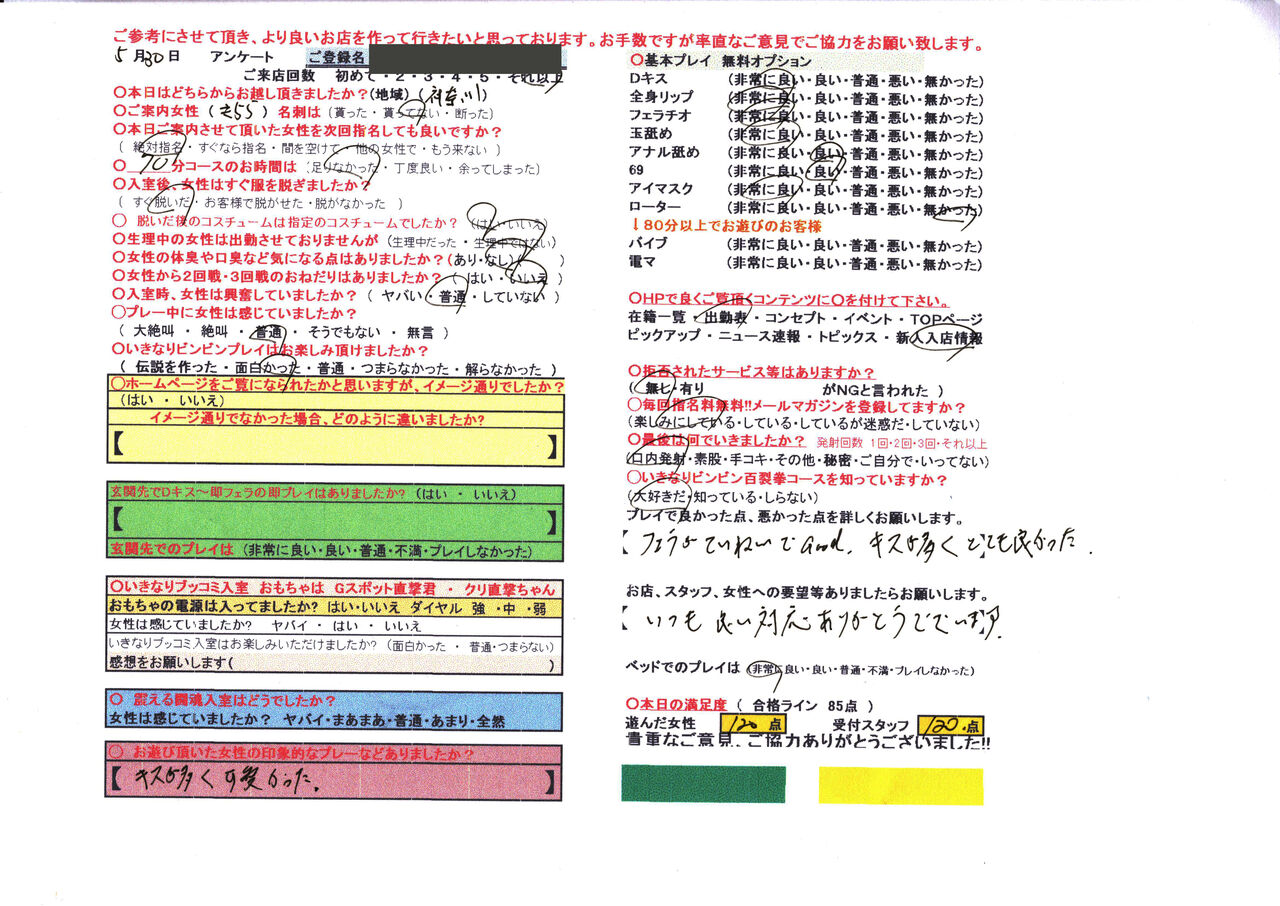 ご参考にさせて頂き、より良いお店を作って行きたいと思っております。お手数ですが率直なご意見でご協力をお願い致します。
5月30日 アンケート ご登録名
ご来店回数 初めて・2・3・4・5・それ以上
〇本日はどちらからお越し頂きましたか?(地域)(神奈川)
〇ご案内女性( ) 名刺は(貰った・貰ってない・断った)
〇本日ご案内させて頂いた女性を次回指名しても良いですか?
(絶対指名・すぐなら指名・間を空けて・他の女性で・もう来ない)
〇 70分コースのお時間は(足りなかった・丁度良い・余ってしまった)
〇入室後、女性はすぐ服を脱ぎましたか?
(すぐ脱いだ・お客様で脱がせた・脱がなかった)
〇 脱いだ後のコスチュームは指定のコスチュームでしたか?(はい・いいえ)
〇生理中の女性は出勤させておりませんが(生理中だった・生理中ではない)
〇女性の体臭や口臭など気になる点はありましたか?(あり・なし)( )
〇女性から2回戦・3回戦のおねだりはありましたか?(はい・いいえ)
〇入室時、女性は興奮していましたか?(ヤバい・普通・していない)
〇プレー中に女性は感じていましたか?
(大絶叫・絶叫・普通・そうでもない・無言)
〇いきなりビンビンプレイはお楽しみ頂けましたか?
(伝説を作った・面白かった・普通・つまらなかった・解らなかった)
〇ホームページをご覧になられたかと思いますが、イメージ通りでしたか?
(はい・いいえ)
イメージ通りでなかった場合、どのように違いましたか?
【 】
玄関先でDキス〜即フェラの即プレイはありましたか?(はい・いいえ)
【 】
玄関先でのプレイは(非常に良い・良い・普通・不満・プレイしなかった)
〇いきなりブッコミ入室 おもちゃは Gスポット直撃君 ・ クリ直撃ちゃん
おもちゃの電源は入ってましたか? はい・いいえ ダイヤル 強・中・弱
女性は感じていましたか? ヤバイ・はい・いいえ
いきなりブッコミ入室はお楽しみいただけましたか?(面白かった・普通・つまらない)
感想をお願いします( )
〇 震える闘魂入室はどうでしたか?
女性は感じていましたか? ヤバイ・まあまあ・普通・あまり・全然
〇 お遊び頂いた女性の印象的なプレーなどありましたか?
【 キスが多く可愛かった. 】
〇基本プレイ 無料オプション
Dキス (非常に良い・良い・普通・悪い・無かった)
全身リップ (非常に良い・良い・普通・悪い・無かった)
フェラチオ (非常に良い・良い・普通・悪い・無かった)
玉舐め (非常に良い・良い・普通・悪い・無かった)
アナル舐め (非常に良い・良い・普通・悪い・無かった)
69 (非常に良い・良い・普通・悪い・無かった)
アイマスク (非常に良い・良い・普通・悪い・無かった)
ローター (非常に良い・良い・普通・悪い・無かった)
↓80分以上でお遊びのお客様
バイブ (非常に良い・良い・普通・悪い・無かった)
電マ (非常に良い・良い・普通・悪い・無かった)
〇HPで良くご覧頂くコンテンツに〇を付けて下さい。
在籍一覧・出勤表・コンセプト・イベント・TOPページ
ピックアップ・ニュース速報・トピックス・新人入店情報
〇拒否されたサービス等はありますか?
(無し・有り がNGと言われた)
〇毎回指名料無料!!メールマガジンを登録してますか?
(楽しみにしている・している・しているが迷惑だ・していない)
〇最後は何でいきましたか? 発射回数 1回・2回・3回・それ以上
(口内発射・素股・手コキ・その他・秘密・ご自分で・いってない)
〇いきなりビンビン百裂拳コースを知っていますか?
(大好きだ・知っている・しらない)
プレイで良かった点、悪かった点を詳しくお願いします。
【 フェラがていねいでGood. キスが多くとても良かった.
お店、スタッフ、女性への要望等ありましたらお願いします。
【 いつも良い対応ありがとうございます.
ベッドでのプレイは(非常に良い・良い・普通・不満・プレイしなかった)
〇本日の満足度( 合格ライン 85点 )
遊んだ女性 120点 受付スタッフ 120点
貴重なご意見、ご協力ありがとうございました!!